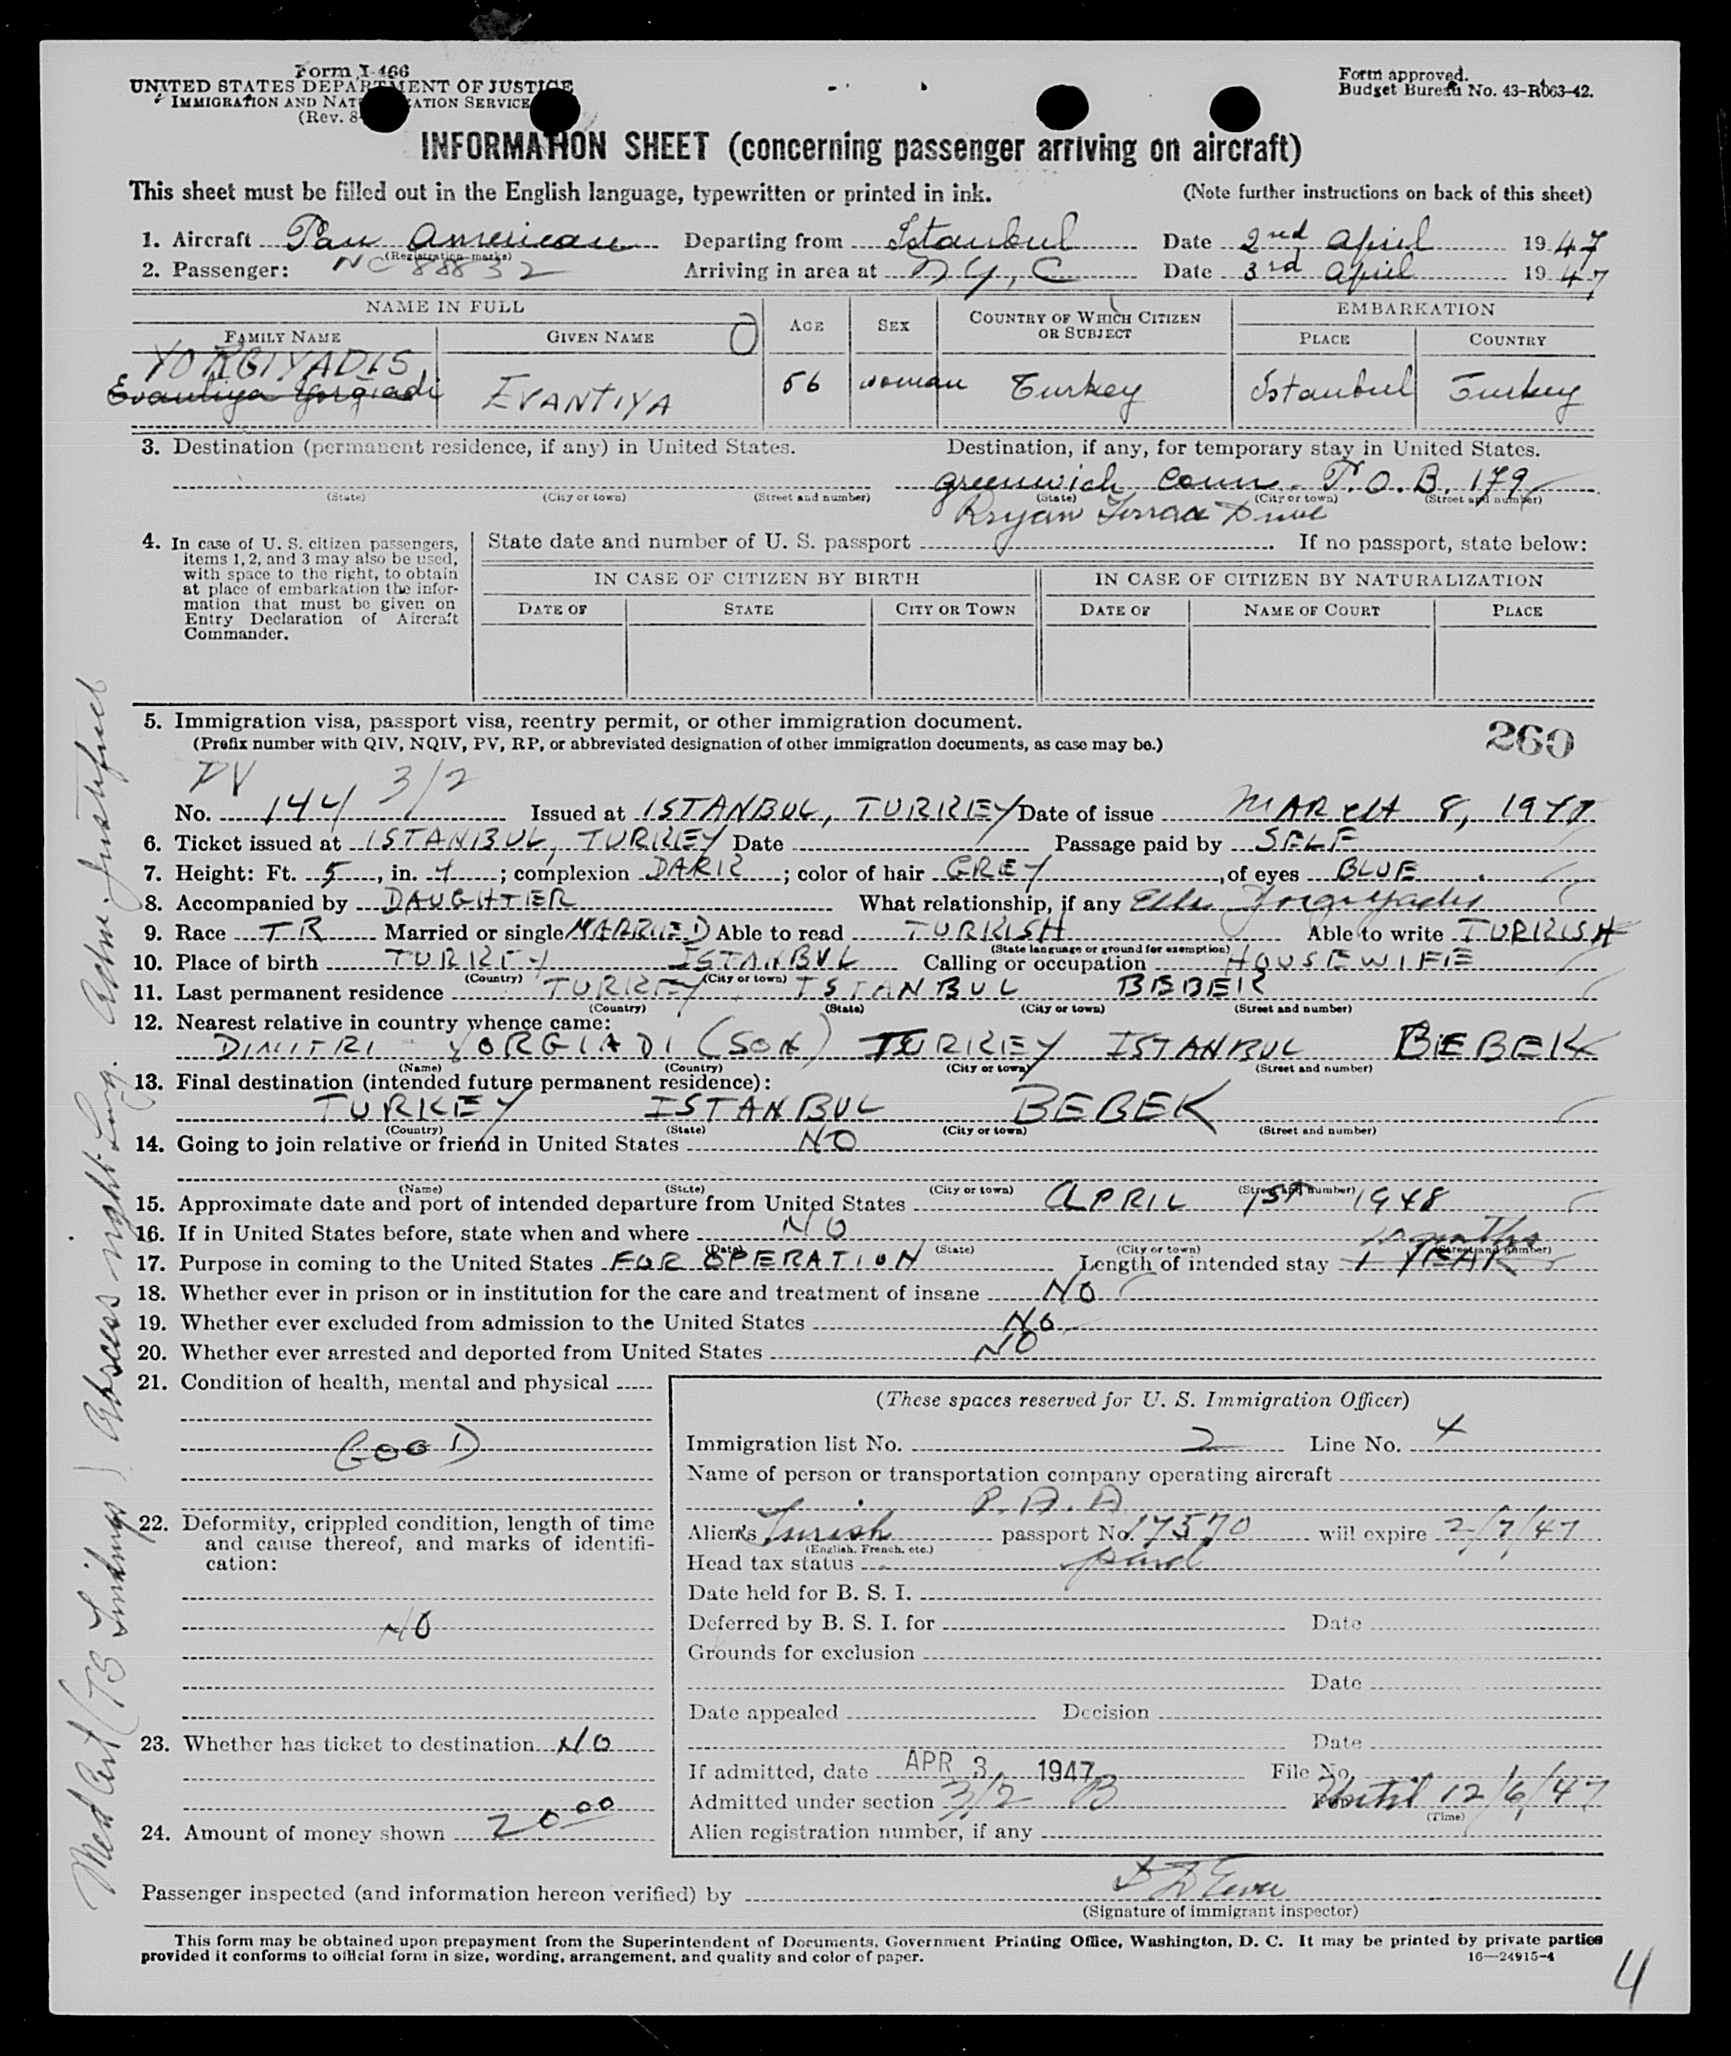 Form I-466
UNITED STATES DEPARTMENT OF JUSTICE
IMMIGRATION AND NATURALIZATION SERVICE
(Rev. 8-
Form approved.
Budget Bureau No. 43-R063-42.
INFORMATION SHEET (concerning passenger arriving on aircraft)
This sheet must be filled out in the English language, typewritten or printed in ink. (Note further instructions on back of this sheet)
1. Aircraft Pan American Departing from Istanbul Date 2nd April 1947
(Registration marks)
2. Passenger: NC 88832 Arriving in area at N Y, C Date 3rd April 1947
NAME IN FULL AGE SEX COUNTRY OF WHICH CITIZEN OR SUBJECT EMBARKATION
FAMILY NAME GIVEN NAME PLACE COUNTRY
YORGIYADIS
Evantiya Yorgiadi EVANTIYA 56 woman Turkey Istanbul Turkey
3. Destination (permanent residence, if any) in United States. Destination, if any, for temporary stay in United States.
greenwich Conn - P.O.B. 179
(State) (City or town) (Street and number) (State) (City or town) (Street and number)
Drive
4. In case of U. S. citizen passengers, items 1, 2, and 3 may also be used, with space to the right, to obtain at place of embarkation the information that must be given on Entry Declaration of Aircraft Commander.
State date and number of U. S. passport . If no passport, state below:
IN CASE OF CITIZEN BY BIRTH IN CASE OF CITIZEN BY NATURALIZATION
DATE OF STATE CITY OR TOWN DATE OF NAME OF COURT PLACE
5. Immigration visa, passport visa, reentry permit, or other immigration document.
(Prefix number with QIV, NQIV, PV, RP, or abbreviated designation of other immigration documents, as case may be.)
260
PV 3/2
No. 144 Issued at ISTANBUL, TURKEY Date of issue MARCH 8, 1947
6. Ticket issued at ISTANBUL, TURKEY Date Passage paid by SELF
7. Height: Ft. 5, in. 4; complexion DARK; color of hair GREY, of eyes BLUE
8. Accompanied by DAUGHTER What relationship, if any Elli Yorgiyadis
9. Race TR Married or single MARRIED Able to read TURKISH Able to write TURKISH
(State language or ground for exemption)
10. Place of birth TURKEY ISTANBUL Calling or occupation HOUSEWIFE
(Country) (City or town)
11. Last permanent residence TURKEY ISTANBUL BEBEK
(Country) (State) (City or town) (Street and number)
12. Nearest relative in country whence came:
DIMITRI YORGIADI (SON) TURKEY ISTANBUL BEBEK
(Name) (Country) (City or town) (Street and number)
13. Final destination (intended future permanent residence):
TURKEY ISTANBUL BEBEK
(Country) (State) (City or town) (Street and number)
14. Going to join relative or friend in United States NO
(Name) (State) (City or town) (Street and number)
15. Approximate date and port of intended departure from United States APRIL 1ST 1948
16. If in United States before, state when and where NO
(Date) (State) (City or town) (Street and number)
months
17. Purpose in coming to the United States FOR OPERATION Length of intended stay 1 YEAR
18. Whether ever in prison or in institution for the care and treatment of insane NO
19. Whether ever excluded from admission to the United States NO
20. Whether ever arrested and deported from United States NO
21. Condition of health, mental and physical
GOOD
22. Deformity, crippled condition, length of time and cause thereof, and marks of identification:
NO
23. Whether has ticket to destination NO
24. Amount of money shown 20 00
(These spaces reserved for U. S. Immigration Officer)
Immigration list No. 2 Line No. 4
Name of person or transportation company operating aircraft
P.A.A
Alien's Turish passport No. 17570 will expire 2/7/47
(English, French, etc.)
Head tax status paid
Date held for B. S. I.
Deferred by B. S. I. for Date
Grounds for exclusion
Date
Date appealed Decision
Date
If admitted, date APR 3 1947 File No.
Admitted under section 3/2 B Until 12/6/47
(Time)
Alien registration number, if any
Passenger inspected (and information hereon verified) by
(Signature of immigrant inspector)
This form may be obtained upon prepayment from the Superintendent of Documents, Government Printing Office, Washington, D. C. It may be printed by private parties
provided it conforms to official form in size, wording, arrangement, and quality and color of paper. 16—24915-4
4
Med Cert (TB Findings) Abscess right Lung.